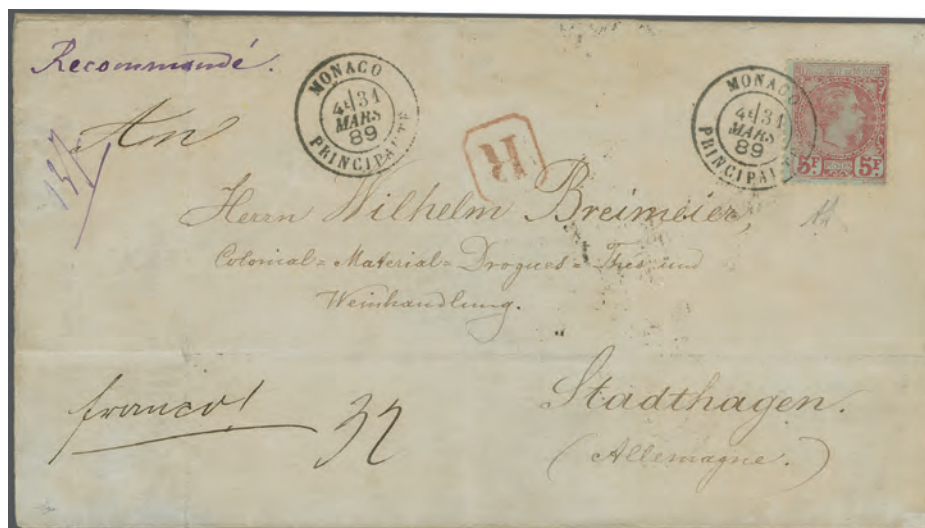 Recommandé.
MONACO
4E 31
MARS
89
PRINCIPAUTÉ
MONACO
4E 31
MARS
89
PRINCIPAUTÉ
5F 5F
R
An
Herrn Wilhelm Breimeier,
Colonial=Material=Drogues=Thés und
Weinhandlung.
Stadthagen.
(Allemagne.)
franco!
32